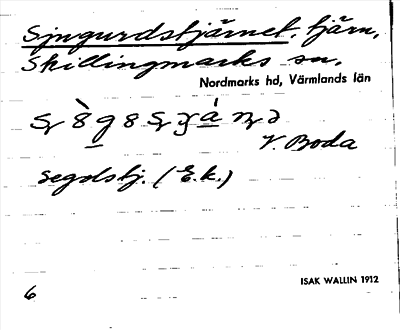 Sjugurdstjärnet, tjärn,
Skillingmarks sn.
Nordmarks hd, Värmlands län
V. Boda
segdstj. (E.k.)
ISAK WALLIN 1912
6